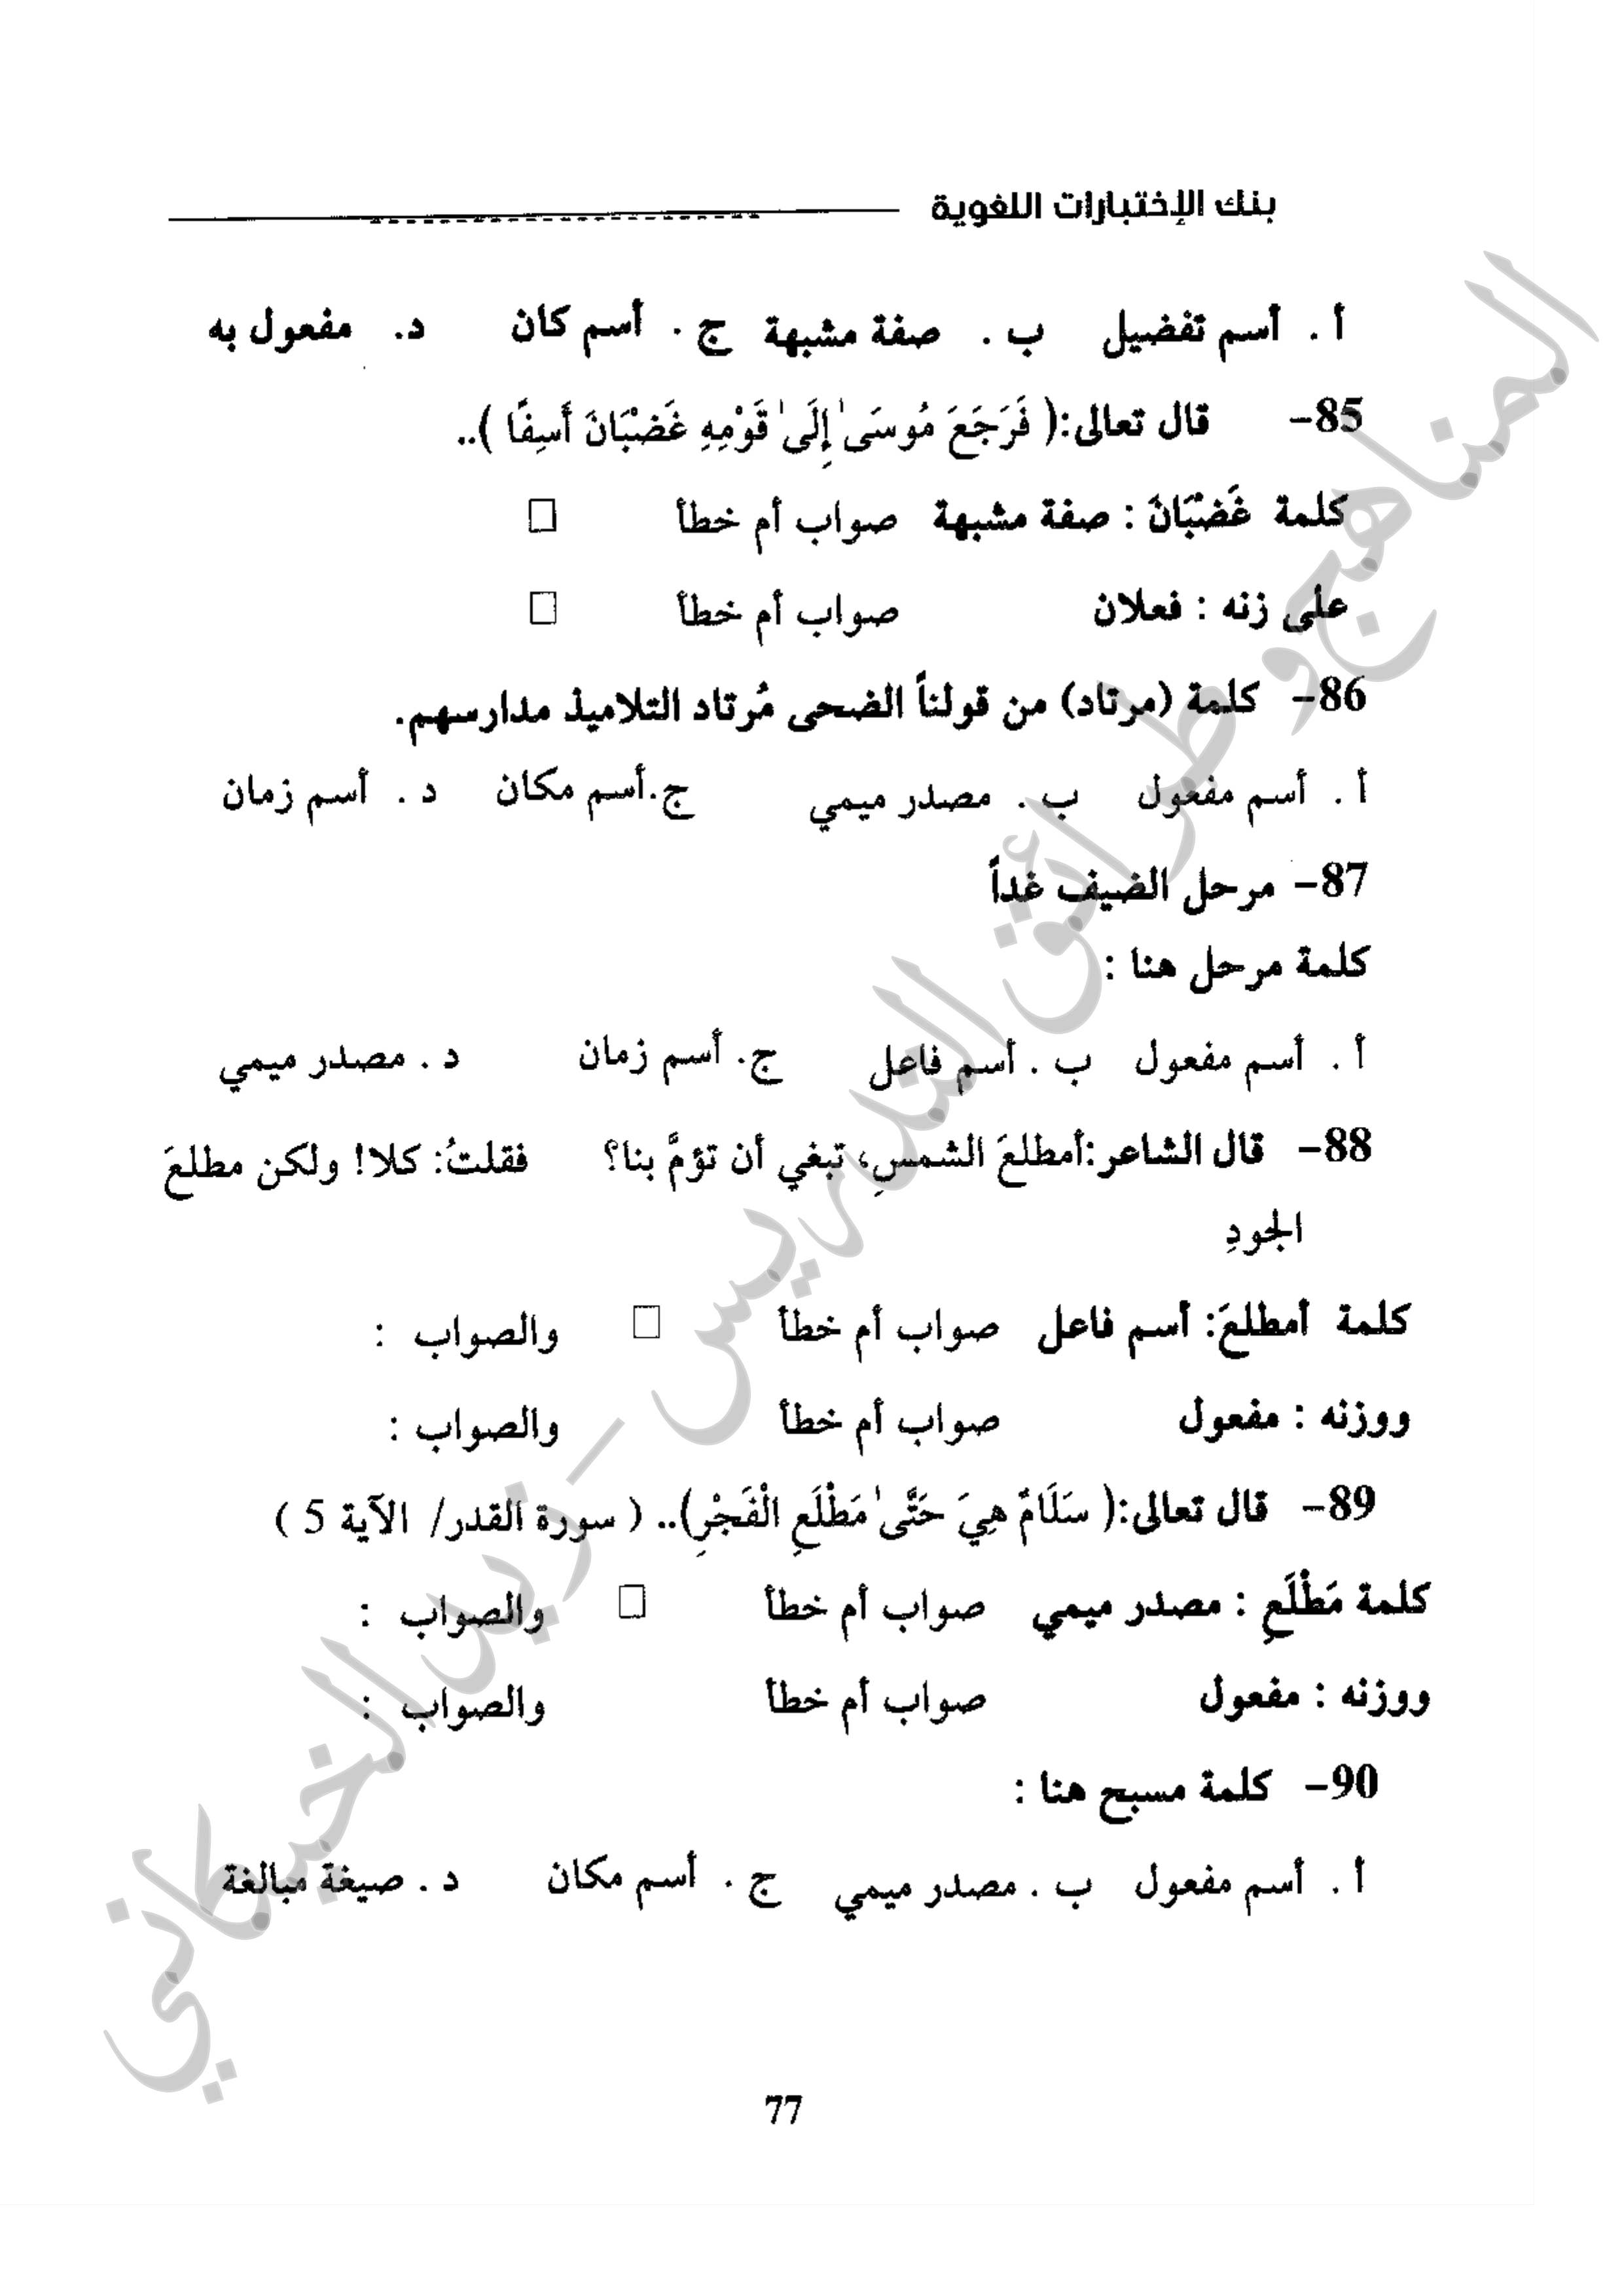 بنك الإختبارات اللغوية
أ . أسم تفضيل ب . صفة مشبهة ج . أسم كان د. مفعول به
85- قال تعالى:( فَرَجَعَ مُوسَىٰ إِلَىٰ قَوْمِهِ غَضْبَانَ أَسِفًا )..
كلمة غَضْبَانَ : صفة مشبهة صواب أم خطأ □
على زنه : فعلان صواب أم خطأ □
86- كلمة (مرتاد) من قولناً الضحى مُرتاد التلاميذ مدارسهم.
أ . أسم مفعول ب . مصدر ميمي ج.أسم مكان د . أسم زمان
87- مرحل الضيف غداً
كلمة مرحل هنا :
أ . أسم مفعول ب . أسم فاعل ج. أسم زمان د . مصدر ميمي
88- قال الشاعر:أمطلعَ الشمسِ، تبغي أن تؤمَّ بنا؟ فقلتُ: كلا! ولكن مطلعَ
الجودِ
كلمة أمطلعَ: أسم فاعل صواب أم خطأ □ والصواب :
ووزنه : مفعول صواب أم خطأ والصواب :
89- قال تعالى:( سَلَامٌ هِيَ حَتَّىٰ مَطْلَعِ الْفَجْرِ).. ( سورة القدر/ الآية 5 )
كلمة مَطْلَعِ : مصدر ميمي صواب أم خطأ □ والصواب :
ووزنه : مفعول صواب أم خطأ والصواب :
90- كلمة مسبح هنا :
أ . أسم مفعول ب . مصدر ميمي ج . أسم مكان د . صيغة مبالغة
77
المناهج وطرائق التدريس - زيد الخيكاني